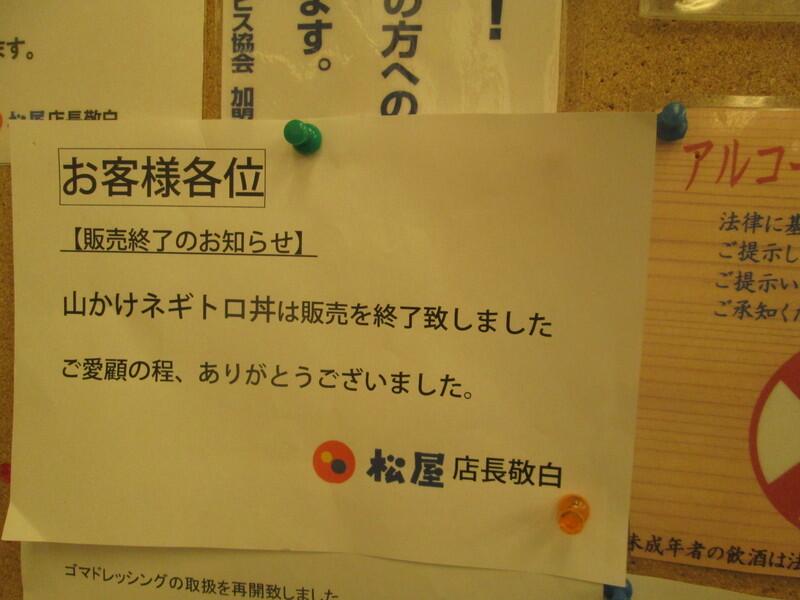 ます。
松屋 店長敬白
ビス協会 加盟
ます。
の方への
!
お客様各位
【販売終了のお知らせ】
山かけネギトロ丼は販売を終了致しました
ご愛顧の程、ありがとうございました。
松屋 店長敬白
ゴマドレッシングの取扱を再開致しました
アルコー
法律に基
ご提示し
ご提示い
ご承知くだ
未成年者の飲酒は法